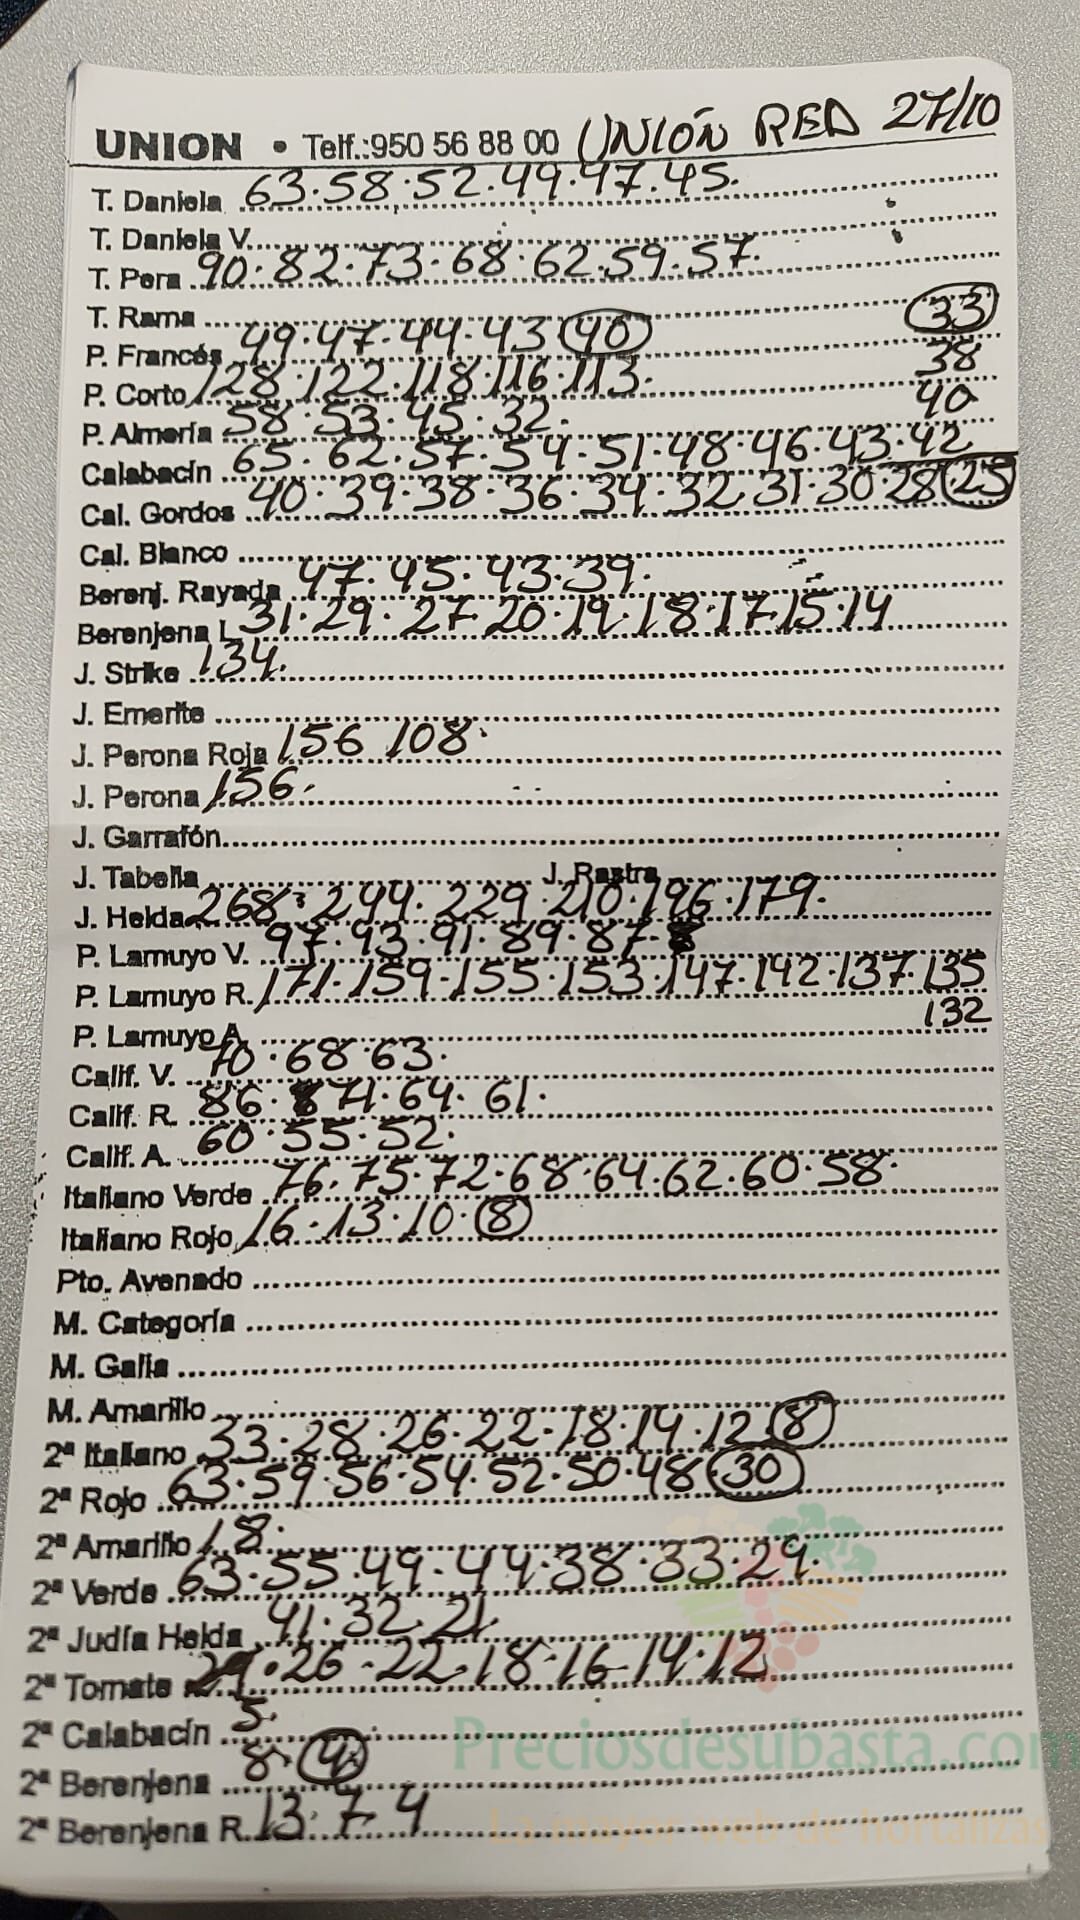 UNION • Telf.:950 56 88 00 UNIÓN RED 27/10
T. Daniela 63.58.52.49.47.45.
T. Daniela V.
T. Pera 90.82.73.68.62.59.57.
T. Rama 33
P. Francés 49.47.44.43 40 38
P. Corto 128.122.118.116.113. 40
P. Almería 58.53.45.32.
Calabacín 65.62.57.54.51.48.46.43.42
Cal. Gordos 40.39.38.36.34.32.31.30.28 25
Cal. Blanco
Berenj. Rayada 47.45.43.39.
Berenjena L 31.29.27.20.19.18.17.15.14
J. Strike 134.
J. Emerite
J. Perona Roja 156 108.
J. Perona 156.
J. Garrafón
J. Tabella J. Rastra
J. Helda 268.244.229.210.196.179.
P. Lamuyo V. 97.93.91.89.87.
P. Lamuyo R. 171.159.155.153.147.142.137.135
132
P. Lamuyo A.
Calif. V. 70.68.63.
Calif. R. 86.71.64.61.
Calif. A. 60.55.52.
Italiano Verde 76.75.72.68.64.62.60.58.
Italiano Rojo 16.13.10.8
Pto. Avenado
M. Categoría
M. Galia
M. Amarillo
2ª Italiano 33.28.26.22.18.14.12.8
2ª Rojo 63.59.56.54.52.50.48.30
2ª Amarillo 18.
2ª Verde 63.55.49.44.38.33.29.
2ª Judía Helda 41.32.21
2ª Tomate 29.26.22.18.16.14.12
2ª Calabacín 5.
2ª Berenjena 8.4
2ª Berenjena R. 13.7.4
Preciosdesubasta.com
La mayor web de hortalizas